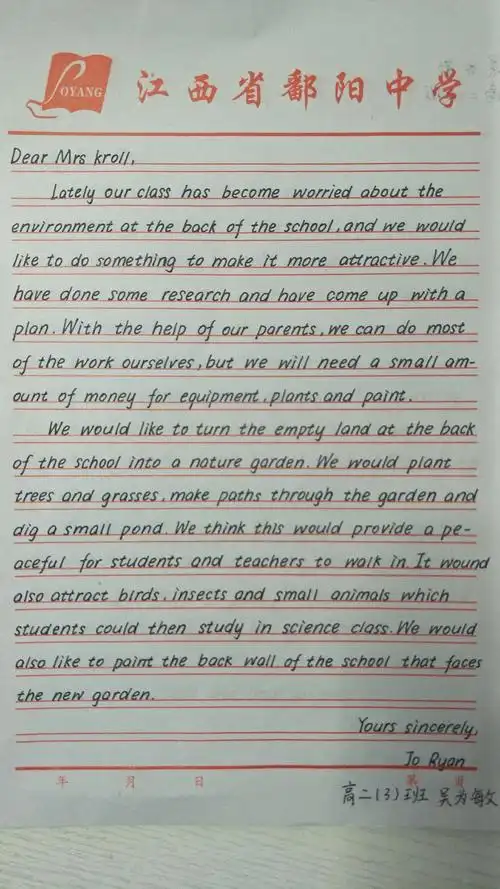 POYANG
江西省鄱阳中学
Dear Mrs kroll,
Lately our class has become worried about the
environment at the back of the school, and we would
like to do something to make it more attractive. We
have done some research and have come up with a
plan. With the help of our parents, we can do most
of the work ourselves, but we will need a small am-
ount of money for equipment, plants and paint.
We would like to turn the empty land at the back
of the school into a nature garden. We would plant
trees and grasses, make paths through the garden and
dig a small pond. We think this would provide a pe-
aceful for students and teachers to walk in. It wound
also attract birds, insects and small animals which
students could then study in science class. We would
also like to paint the back wall of the school that faces
the new garden.
Yours sincerely,
Jo Ryan
年 月 日 第 页
高二(3)班 吴为